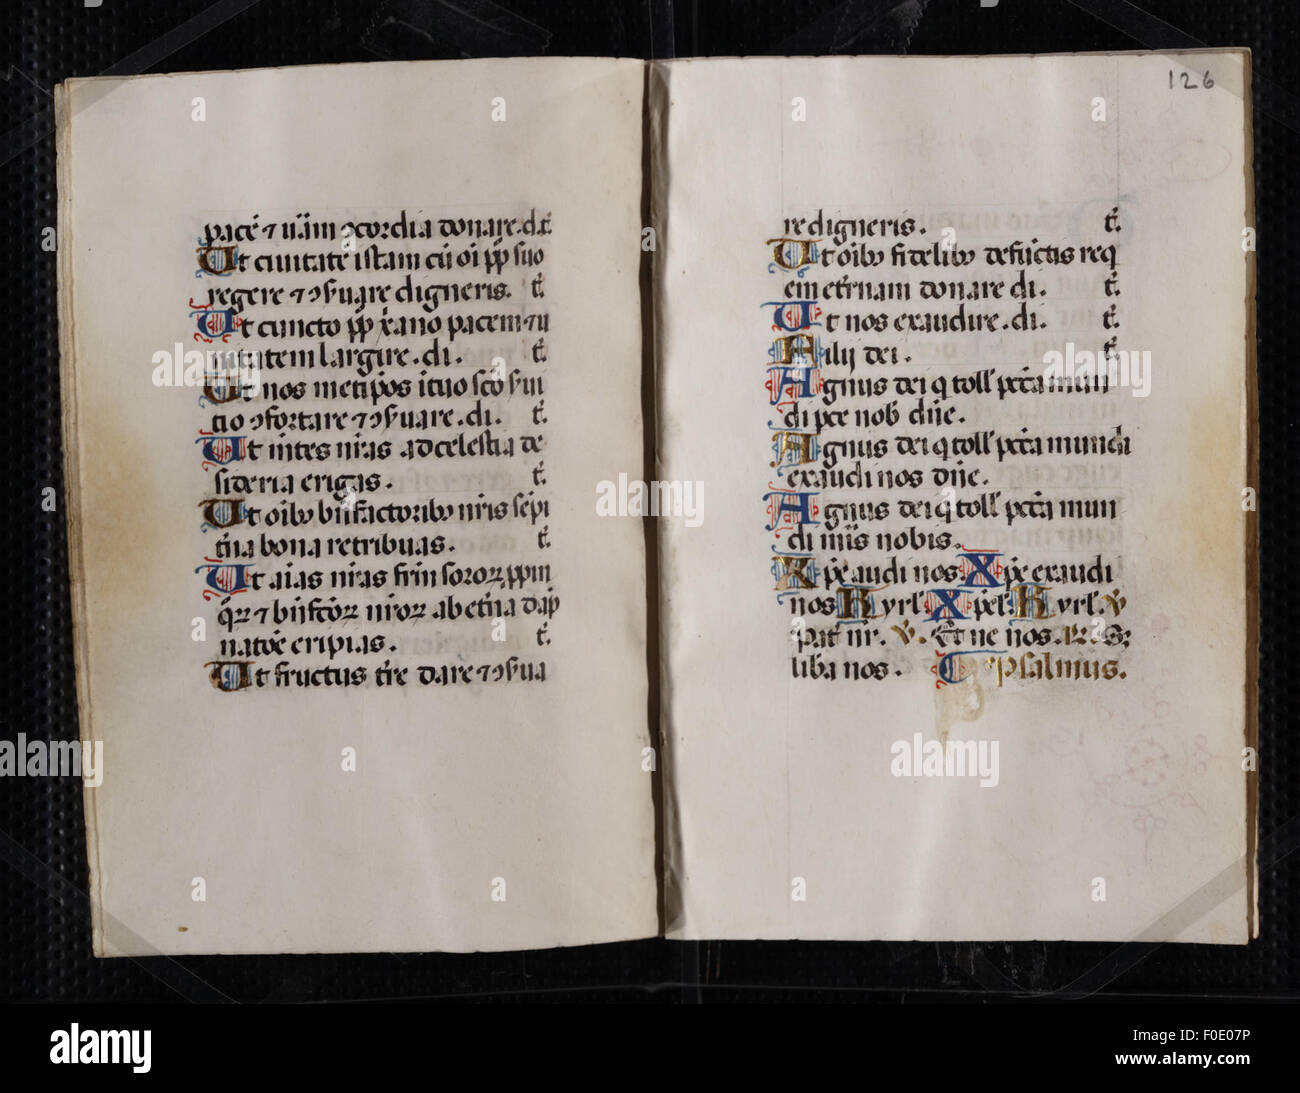 pacē ⁊ uĩam ꝯcordia donare. d. t̄.
Ut ciuitatē istam cū oĩ pp̄ suo
regere ⁊ ꝯẜuare digneris. t̄.
Ut cuncto pp̄ xp̄iano pacem ⁊ u
nitatem largire. di. t̄.
Ut nos metip̄os ituo sc̄o ẜui
tio ꝯfortare ⁊ ꝯẜuare. di. t̄.
Ut mētes nr̄as ad celestia de
sideria erigas. t̄.
Ut oībꝫ bn̄factoribꝫ nr̄is sēpi
t̄na bona retribuas. t̄.
Ut aīas nr̄as fr̄m soroꝝ ꝓpin
qꝝ ⁊ bn̄fc̄oꝝ nr̄oꝝ ab et̄na dāp
natōe eripias. t̄.
Ut fructus tr̄e dare ⁊ ꝯẜua
126
re digneris. t̄.
Ut oībꝫ fidelibꝫ defūctis req
em et̄rnam donare di. t̄.
Ut nos exaudire. di. t̄.
Filij dei. t̄.
Agnus dei q toll' pc̄ta mun
di pce nob dn̄e.
Agnus dei q toll' pc̄ta mundi
exaudi nos dn̄e.
Agnus dei q toll' pc̄ta mun
di mis̄ nobis.
Xp̄e audi nos. Xp̄e exaudi
nos Kyrl'. Xpel'. Kyrl'. V
Pat' nr̄. V. Et ne nos. R. S;
liba nos. Psalmus.
alamy
Image ID: F0E07P
www.alamy.com